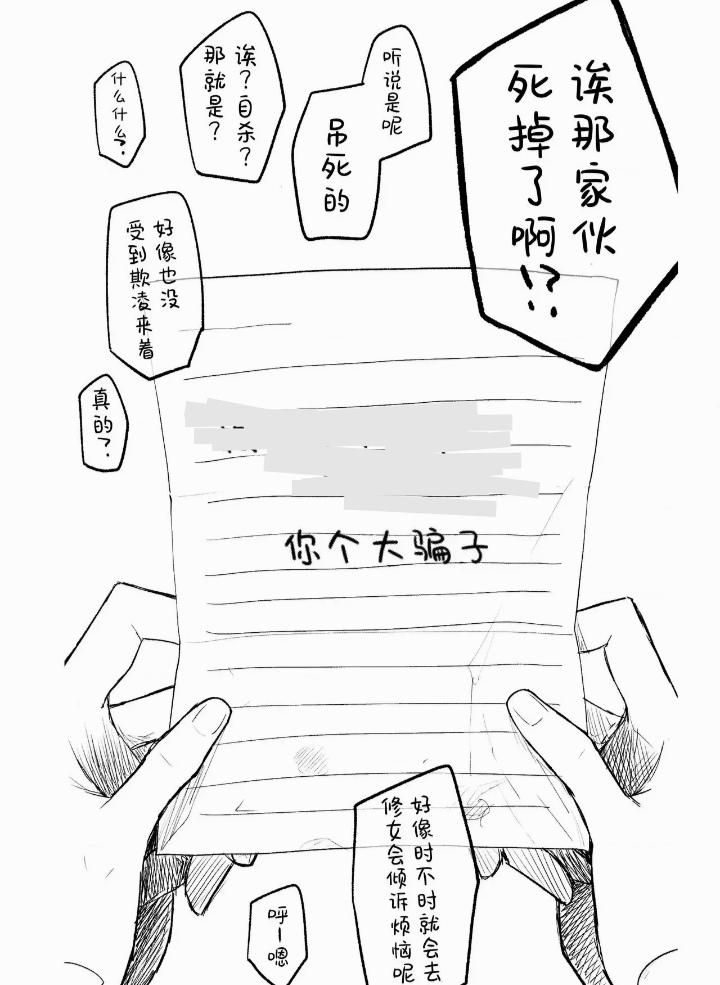 诶那家伙
死掉了啊!?
听说是呢
吊死的
诶？自杀？
那就是？
什么什么？
好像也没
受到欺凌来着
真的？
你个大骗子
好像时不时就会去
修女会倾诉烦恼呢
呼ー嗯